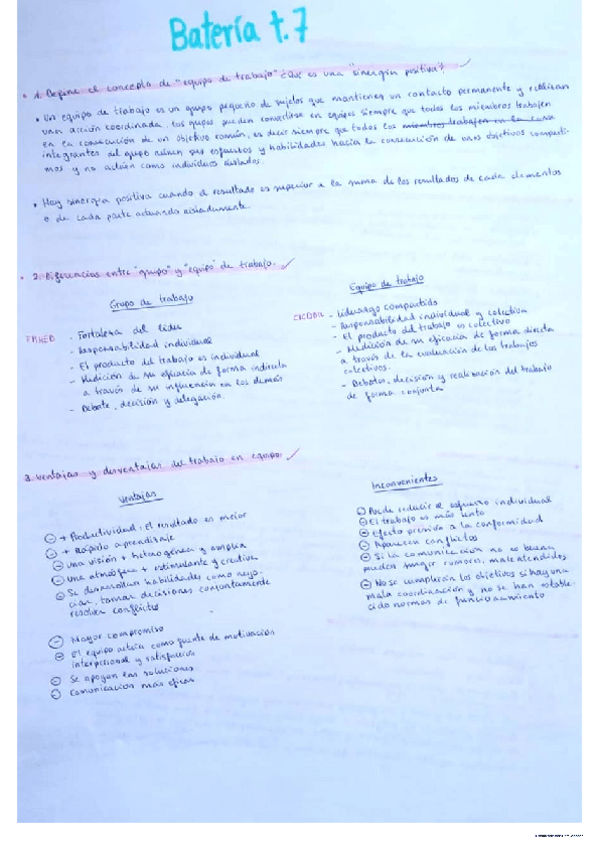 Batería t.7
1. Define el concepto de "equipo de trabajo" ¿Qué es una "sinergia positiva"?
• Un equipo de trabajo es un grupo pequeño de sujetos que mantienen un contacto permanente y realizan
una acción coordinada, los grupos pueden convertirse en equipos siempre que todos los miembros trabajen
en la consecución de un objetivo común, es decir siempre que todos los miembros trabajen en la
integrantes del grupo aúnen sus esfuerzos y habilidades hacia la consecución de unos objetivos comparti-
mos y no actúen como individuos aislados.
• Hay sinergia positiva cuando el resultado es superior a la suma de los resultados de cada elementos
o de cada parte actuando aisladamente.
2. Diferencias entre "grupo" y "equipo" de trabajo.
Grupo de trabajo
- Fortaleza del líder
- Responsabilidad individual
- El producto del trabajo es individual
- Medición de su eficacia de forma indirecta
a través de su influencia en los demás
- Debate, decisión y delegación.
Equipo de trabajo
- Liderazgo compartido
- Responsabilidad individual y colectiva
- El producto del trabajo es colectivo
- Medición de su eficacia de forma directa
a través de la evaluación de los trabajos
colectivos.
- Debates, decisión y realización del trabajo
de forma conjunta
3. Ventajas y desventajas del trabajo en equipo.
Ventajas
+ Productividad, el resultado es mejor
+ Rápido aprendizaje
Una visión + heterogénea y amplia
Una atmósfera + estimulante y creativa
Se desarrollan habilidades como nego-
ciar, tomar decisiones conjuntamente
resolver conflictos
Mayor compromiso
El equipo actúa como fuente de motivación
interpersonal y satisfacción
Se apoyan las soluciones
Comunicación más eficaz
Inconvenientes
Puede reducir el esfuerzo individual
El trabajo es más lento
Efecto presión a la conformidad
Aparecen conflictos
Si la comunicación no es buena
pueden surgir rumores, malentendidos
No se cumplirán los objetivos si hay una
mala coordinación y no se han estable-
cido normas de funcionamiento